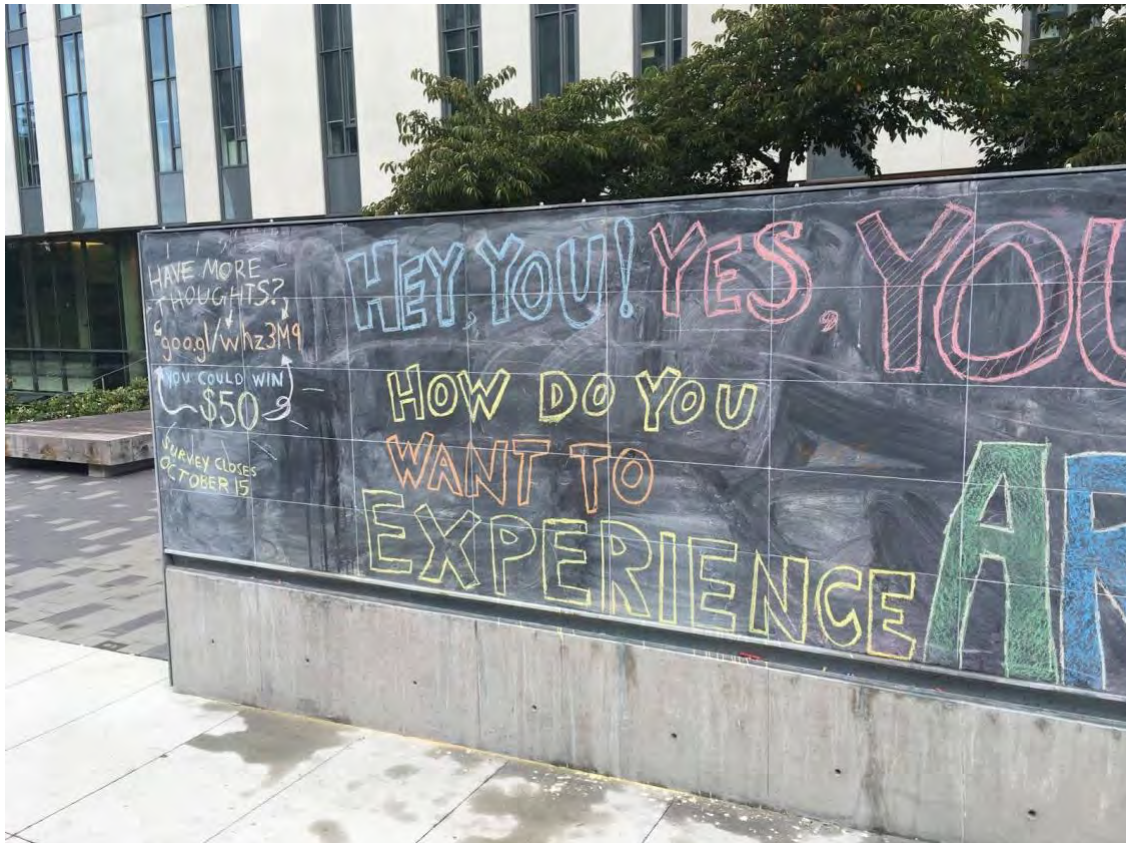 HAVE MORE
THOUGHTS?
goo.gl/whz3M9
YOU COULD WIN
$50
SURVEY CLOSES
OCTOBER 15
HEY, YOU! YES, YOU
HOW DO YOU
WANT TO
EXPERIENCE AR